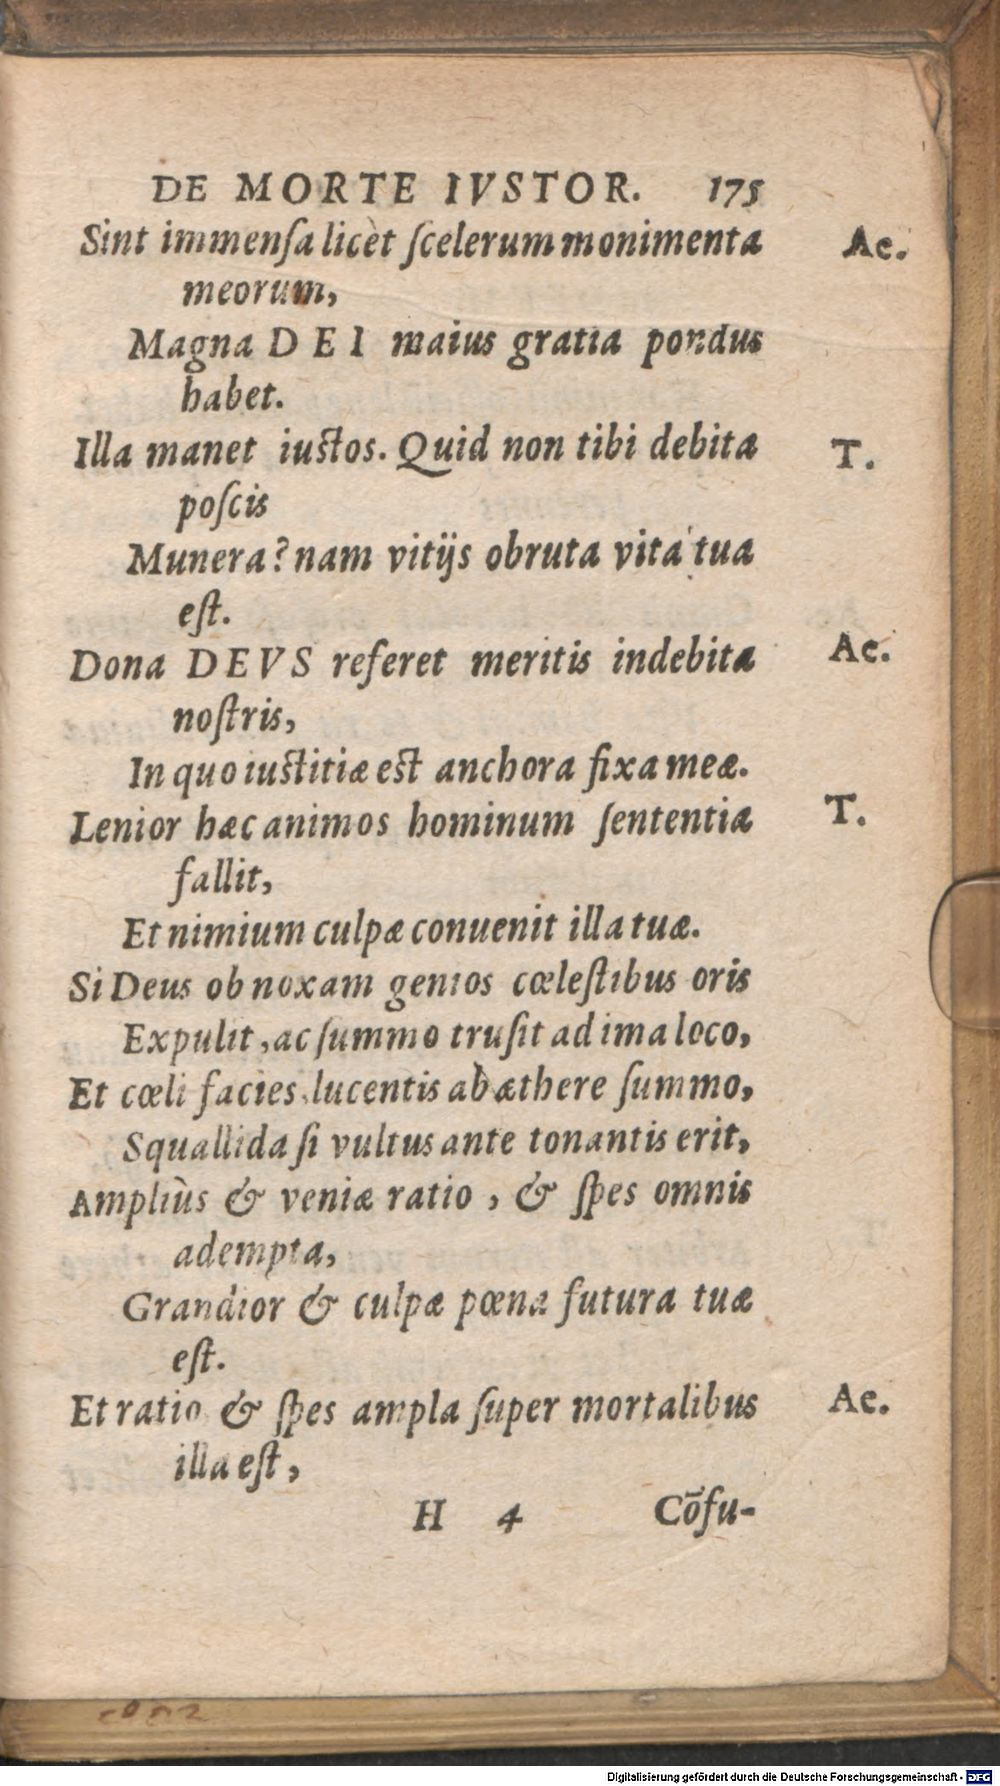 DE MORTE IVSTOR. 175
Sint immensa licèt scelerum monimenta Ac.
meorum,
Magna DEI maius gratia pondus
habet.
Illa manet iustos. Quid non tibi debita T.
poscis
Munera? nam vitijs obruta vita tua
est.
Dona DEVS referet meritis indebita Ac.
nostris,
In quo iustitiæ est anchora fixa meæ.
Lenior hæc animos hominum sententia T.
fallit,
Et nimium culpæ conuenit illa tuæ.
Si Deus ob noxam genios cœlestibus oris
Expulit, ac summo trusit ad ima loco,
Et cœli facies lucentis ab æthere summo,
Squallida si vultus ante tonantis erit,
Ampliùs & veniæ ratio, & spes omnis
adempta,
Grandior & culpæ pœna futura tuæ
est.
Et ratio & spes ampla super mortalibus Ac.
illa est,
H 4 Cōfu-
Digitalisierung gefördert durch die Deutsche Forschungsgemeinschaft - DFG